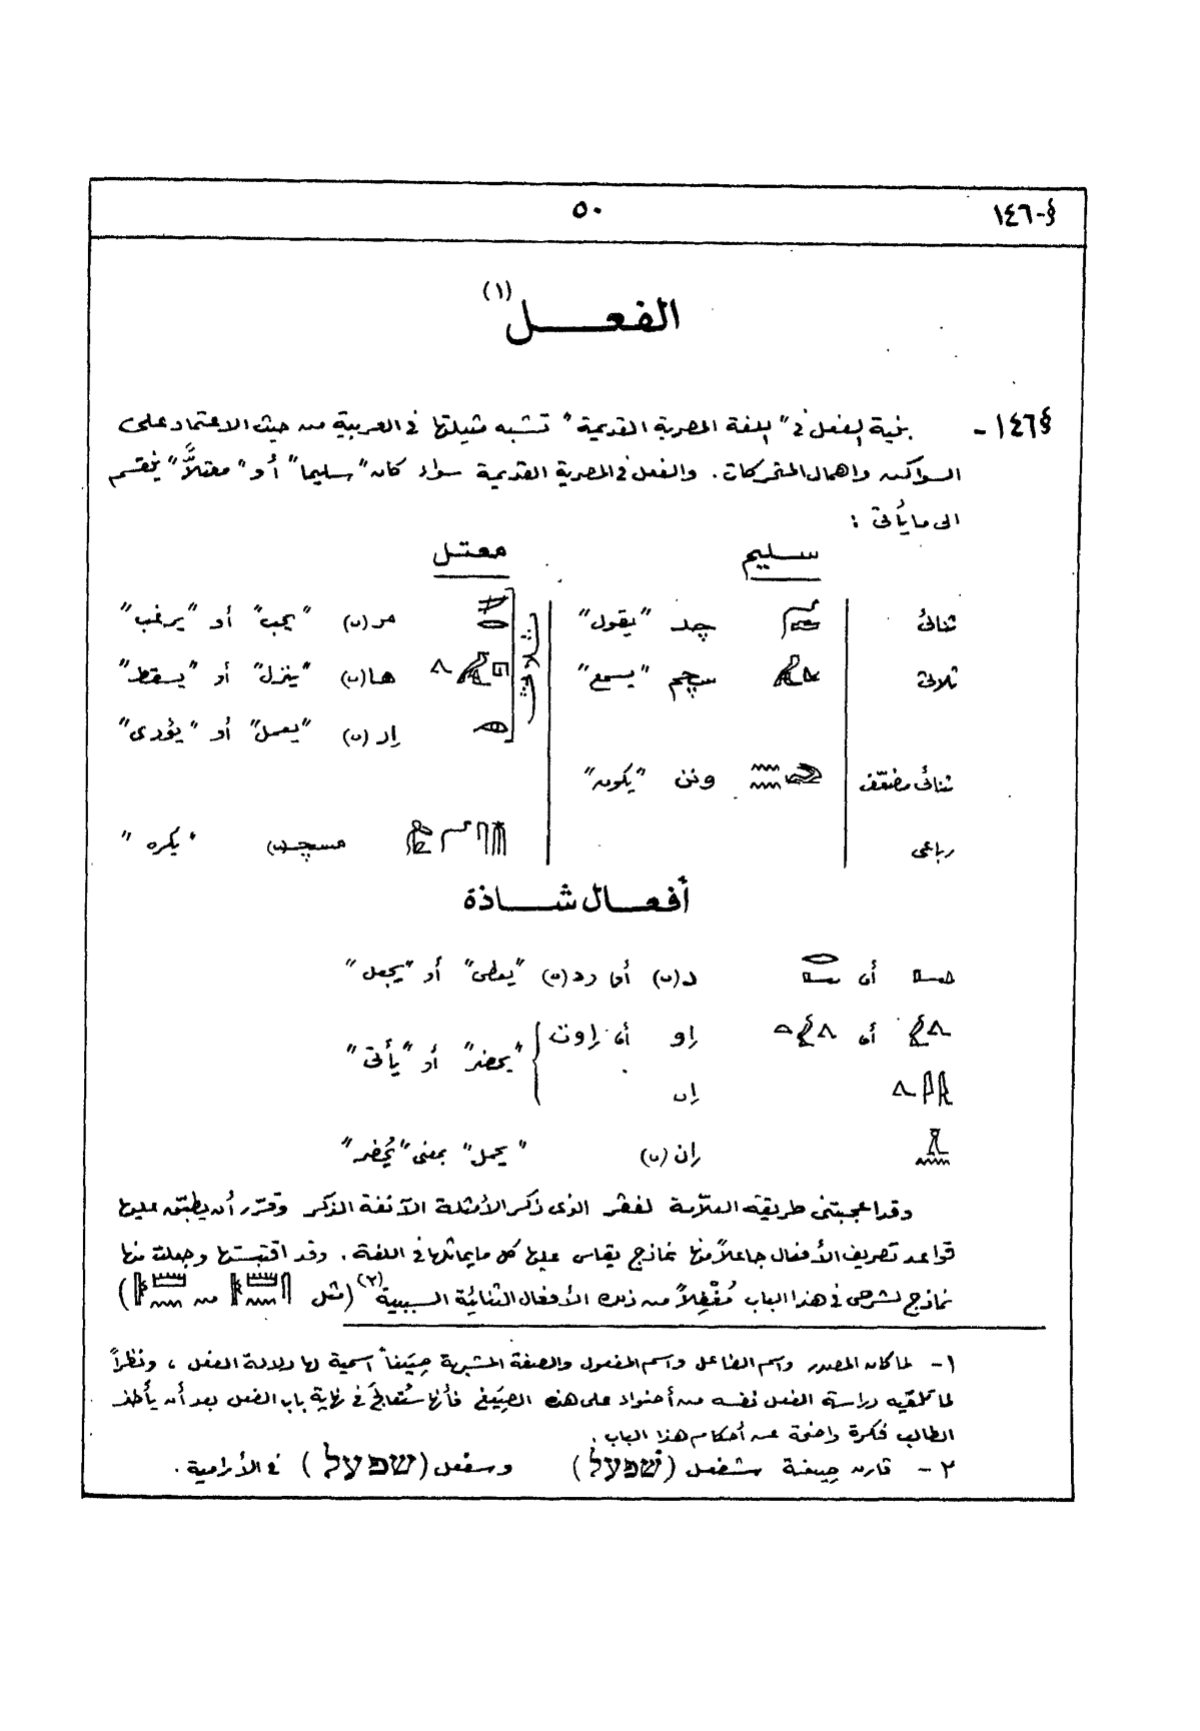 §-١٤٦
٥٠
الفعـــل (١)
§١٤٦- بنية الفعل فى "اللغة المصرية القديمة" تشبه مثيلتها فى العربية من حيث الاعتماد على
السواكن واهمال المتحركات. والفعل فى المصرية القديمة سواء كان "سليما" أو "معتلاً" ينقسم
الى ما يأتى :
سليم معتل
ثنائى چد "يقول" ثلاثى مر(ى) "يحب" أو "يرغب"
ثلاثى سچم "يسمع" ها(ى) "ينزل" أو "يسقط"
إر(ى) "يعمل" أو "يؤدى"
ثنائى مضعّف ونن "يكون"
رباعى مسچد(ى) "يكره"
أفعــال شــاذة
أو د(ى) أو رد(ى) "يعطى" أو "يجعل"
أو إو أو إوت "يحضر" أو "يأتى"
إى
إن(ى) "يحمل" بمعنى "يُحضر"
وقد اعجبتنى طريقة العلاّمة لفڤر الذى ذكر الأمثلة الآنفة الذكر وقرّر أن يطبّق عليها
قواعد تصريف الأفعال جاعلاً منها نماذج يقاس عليها كل ما يماثلها فى اللغة. وقد اقتبستها وجعلت منها
نماذج لشرحى فى هذا الباب مُغْفِلاً من ذلك الأفعال الثنائية السببية (٢) (مثل من )
١- لما كان المصدر واسم الفاعل واسم المفعول والصفة المشبهة صِيَغاً اسمية لها دلالة الفعل ، ونظراً
لما تلقيه دراسة الفعل نفسه من أضواء على هذه الصِيَغ فأنها ستُعالَج فى نهاية باب الفعل بعد أن يأخذ
الطالب فكرة واضحة عن أحكام هذا الباب.
٢- قارن صيغة شفعل (שׁפעל) وسفعل (שפעל) فى الأرامية.